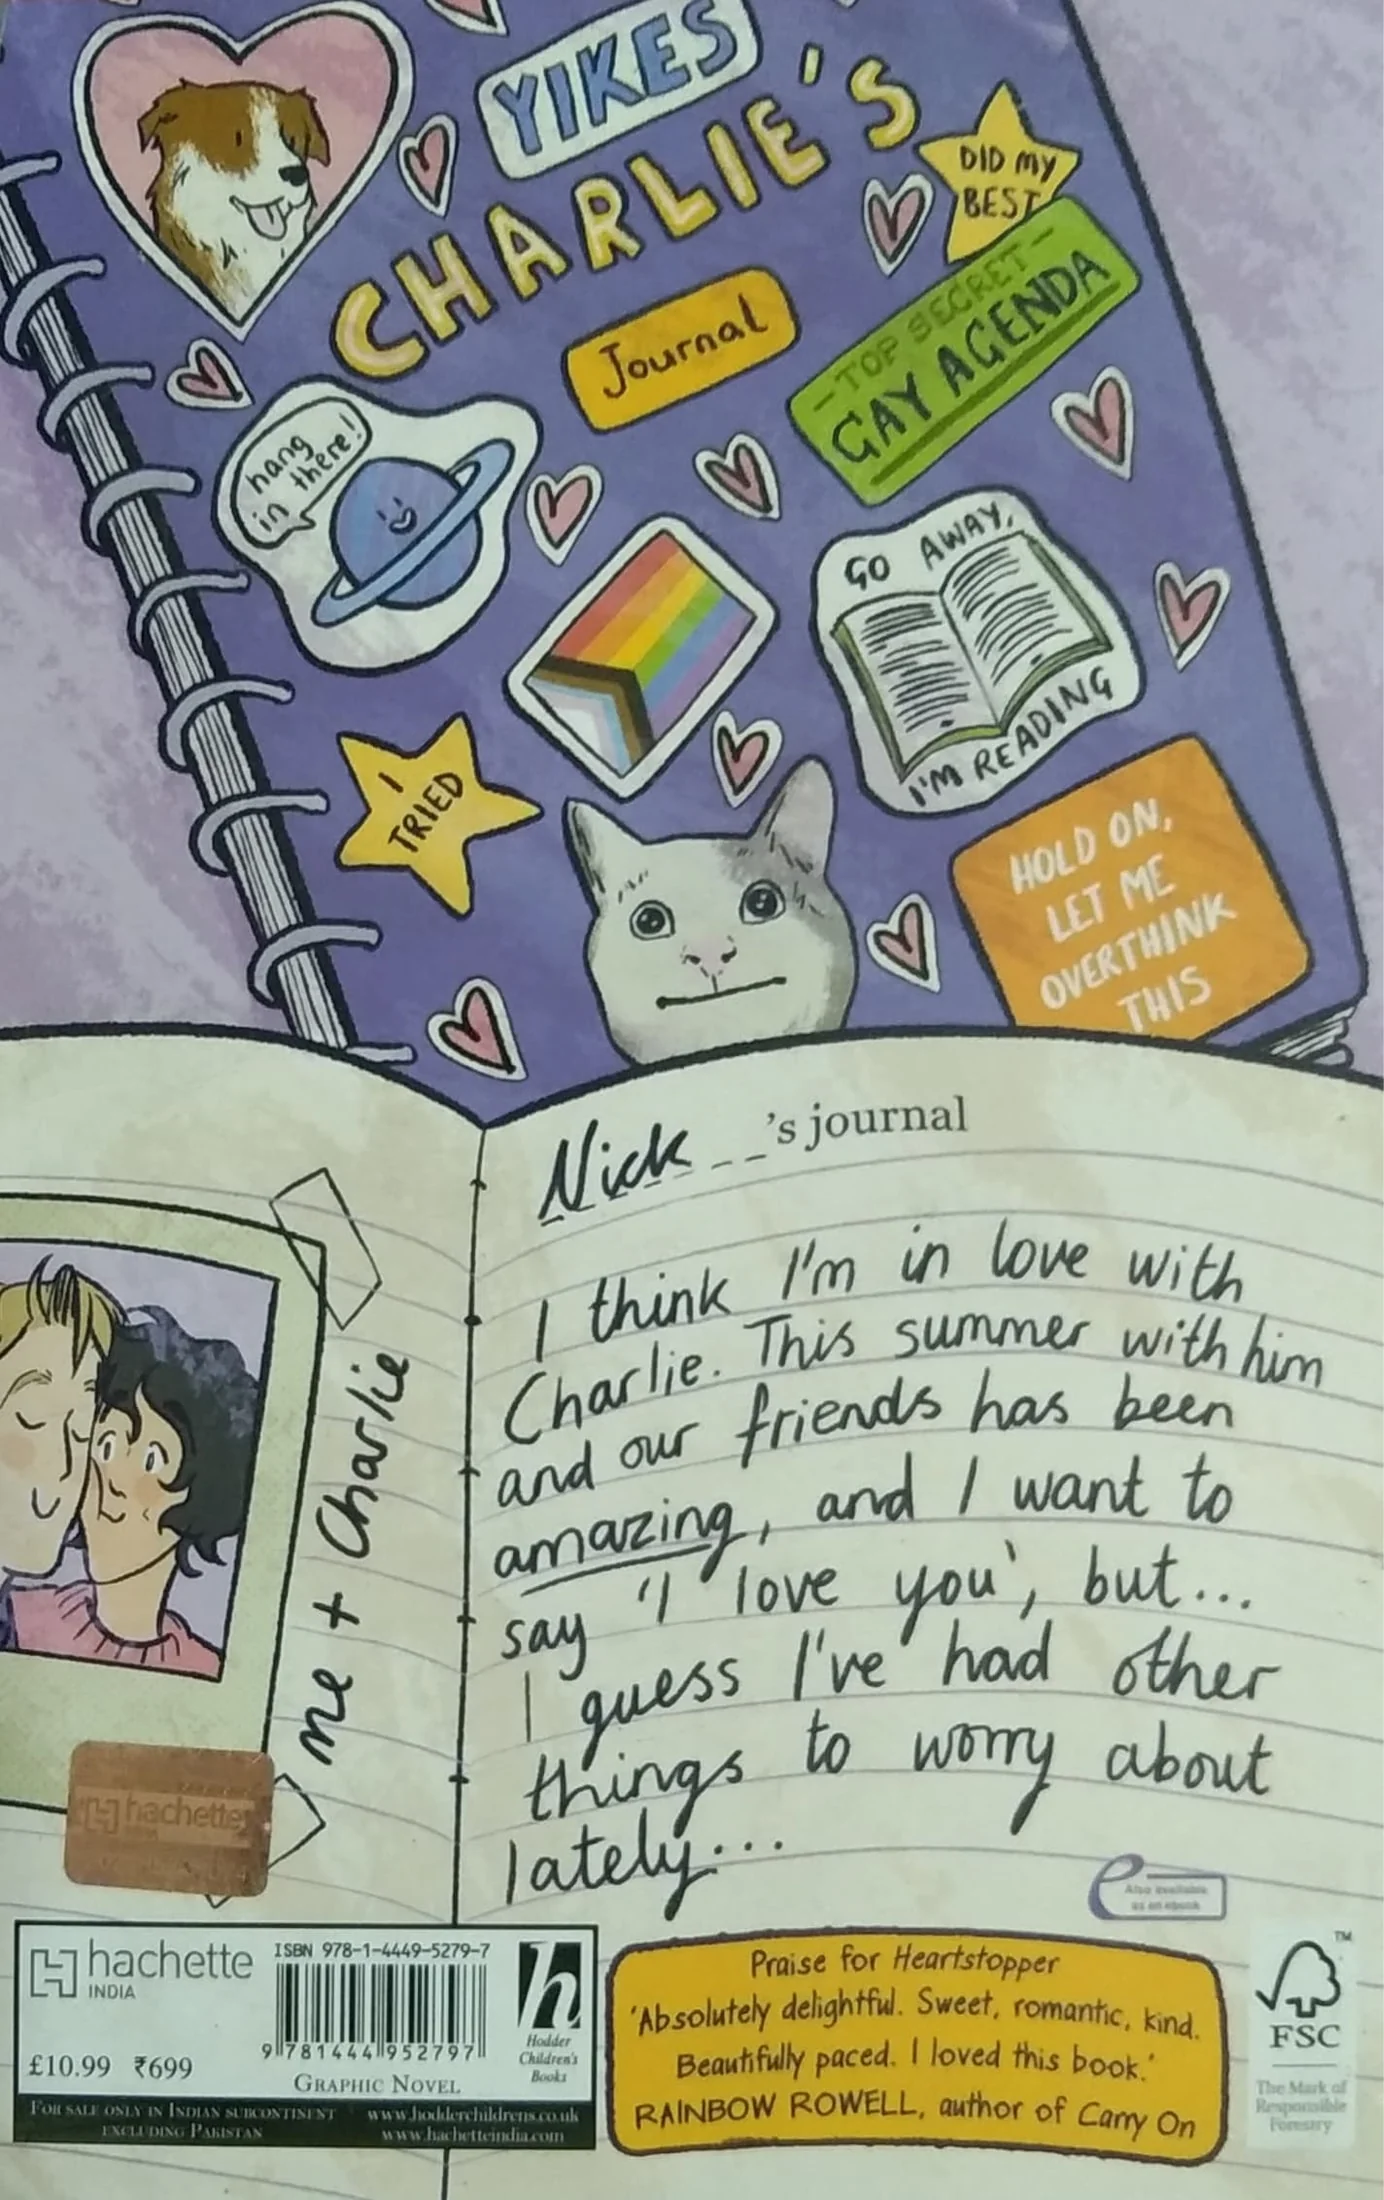 YIKES
CHARLIE'S
Journal
DID MY
BEST
-TOP SECRET-
GAY AGENDA
hang
in there!
GO AWAY,
I'M READING
I
TRIED
HOLD ON,
LET ME
OVERTHINK
THIS
Nick __'s journal
I think I'm in love with
Charlie. This summer with him
and our friends has been
amazing, and I want to
say 'I love you', but...
I guess I've had other
things to worry about
lately...
me + Charlie
hachette
Also available
as an ebook
hachette
INDIA
ISBN 978-1-4449-5279-7
9 781444 952797
£10.99 ₹699
GRAPHIC NOVEL
h
Hodder
Children's
Books
FOR SALE ONLY IN INDIAN SUBCONTINENT
EXCLUDING PAKISTAN
www.hodderchildrens.co.uk
www.hachetteindia.com
Praise for Heartstopper
'Absolutely delightful. Sweet, romantic, kind.
Beautifully paced. I loved this book.'
RAINBOW ROWELL, author of Carry On
TM
FSC
The Mark of
Responsible
Forestry